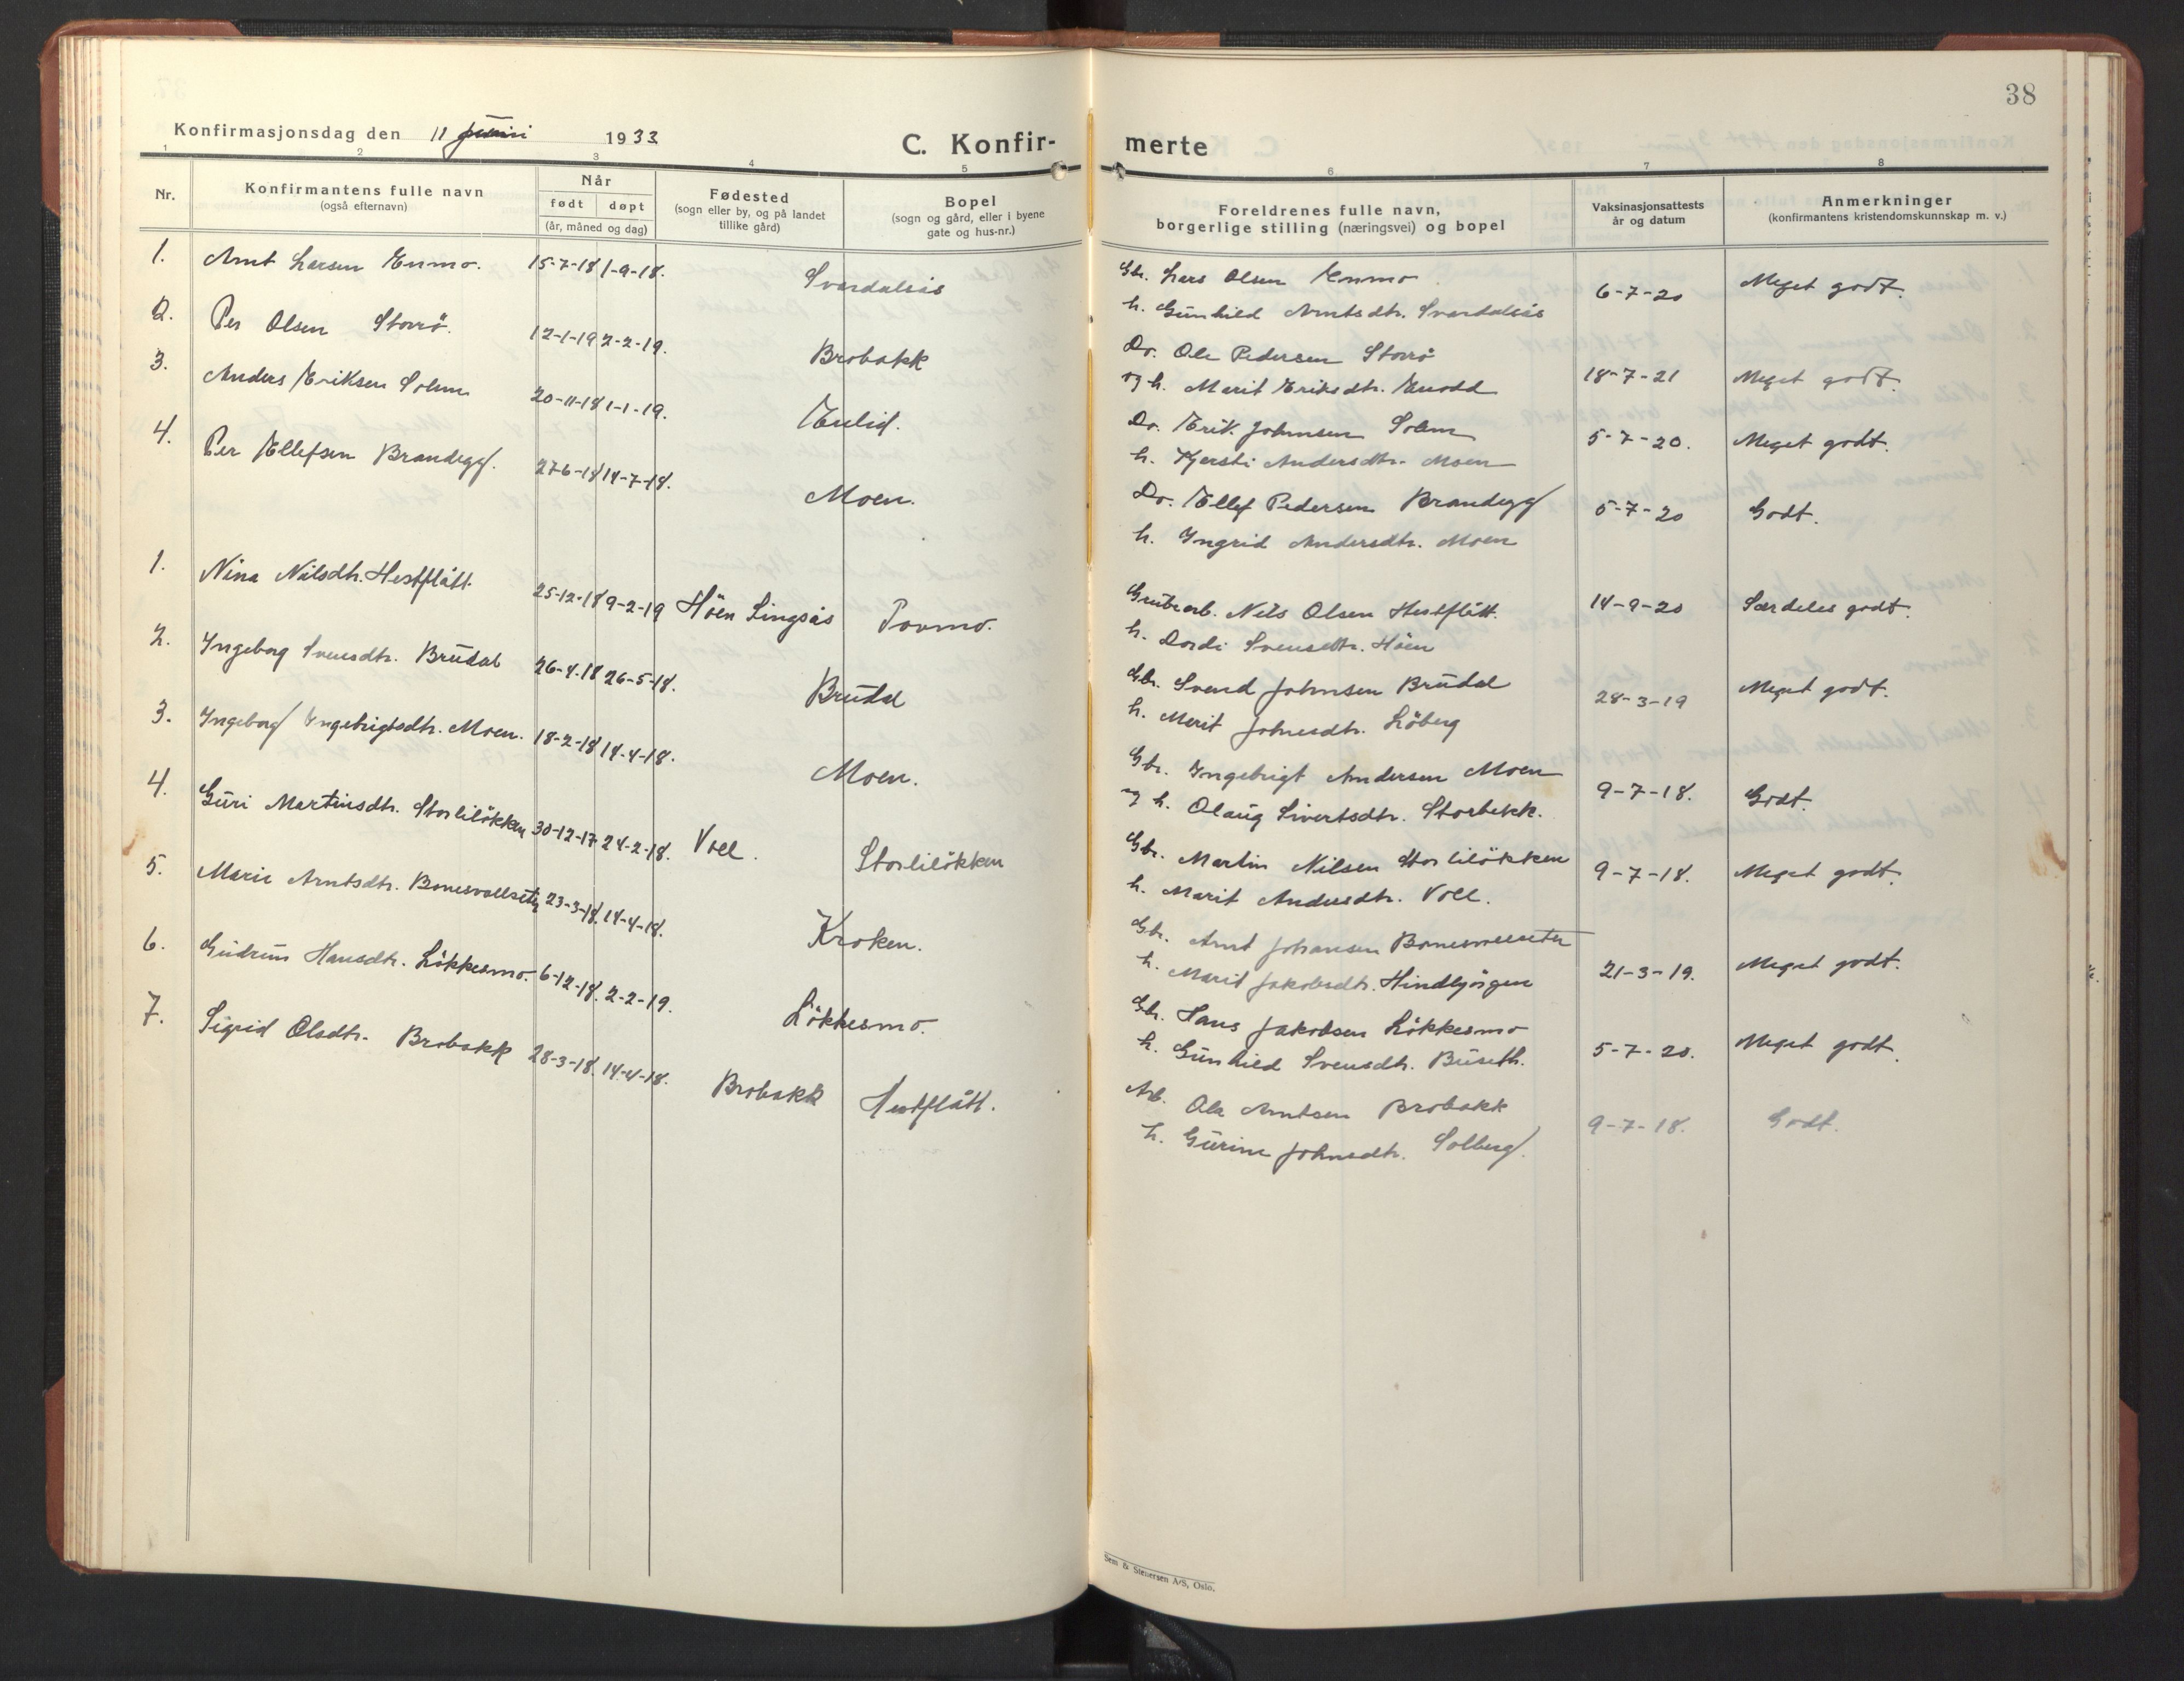 38
Konfirmasjonsdag den 11 juni 1933
C. Konfir-
merte
1 2 3 4 5 6 7 8
Nr.
Konfirmantens fulle navn
(også efternavn)
Når
født døpt
(år, måned og dag)
Fødested
(sogn eller by, og på landet
tillike gård)
Bopel
(sogn og gård, eller i byene
gate og hus-nr.)
Foreldrenes fulle navn,
borgerlige stilling (næringsvei) og bopel
Vaksinasjonsattests
år og datum
Anmerkninger
(konfirmantens kristendomskunnskap m. v.)
1. Arnt Larsen Enmo. 15-7-18 1-9-18. Svardalsås Gbr. Lars Olsen Enmo 6-7-20 Meget godt.
h. Gunhild Arntsdtr. Svardalsås
2. Per Olsen Storrö. 12-1-19 2-2-19. Brobakk Do. Ole Pedersen Storrö 18-7-21 Meget godt.
og h. Marit Eriksdtr. Enodd
3. Anders Eriksen Solem 20-11-18 1-1-19. Enlid. Do. Erik Johnsen Solem 5-7-20. Meget godt.
h. Kjersti Andersdtr. Moen
4. Per Ellefsen Brandegg. 27-6-18 14-7-18. Moen. Do. Ellef Pedersen Brandegg 5-7-20 Godt.
h. Ingrid Andersdtr. Moen
1. Nina Nilsdtr. Hestflått 25-12-18 9-2-19 Höen Singsås Povmo. Grubearb. Nils Olsen Hestflått. 14-9-20 Særdeles godt.
h. Dordi Svensdtr. Höen
2. Ingeborg Svensdtr. Brudal 26-4-18 26-5-18. Brudal Gbr. Svend Johnsen Brudal 28-3-19 Meget godt.
h. Merit Johnsdtr. Löberg
3. Ingeborg Ingebrigtsdtr. Moen. 18-2-18 14-4-18. Moen. Gbr. Ingebrigt Andersen Moen 9-7-18. Godt.
og h. Olaug Sivertsdtr. Storbekk.
4. Guri Martinsdtr. Storlilökken 30-12-17 24-2-18. Voll. Storlilökken Gbr. Martin Nilsen Storlilökken 9-7-18. Meget godt.
h. Marit Andersdtr. Voll.
5. Marie Arntsdtr. Bonesvollseter 23-3-18. 14-4-18. Kroken. Gbr. Arnt Johansen Bonesvollseter 21-3-19. Meget godt.
h. Marit Jakobsdtr. Hindbjörgen
6. Gudrun Hansdtr. Lökkesmo. 6-12-18. 2-2-19. Lökkesmo. Gbr. Hans Jakobsen Lökkesmo 5-7-20. Meget godt.
h. Gunhild Svensdtr. Buseth.
7. Sigrid Olsdtr. Brobakk 28-3-18. 14-4-18. Brobakk Hestflått. Arb. Ole Arntsen Brobakk 9-7-18. Godt.
h. Gurine Johnsdtr. Solberg.
Sem & Stenersen A/S, Oslo.